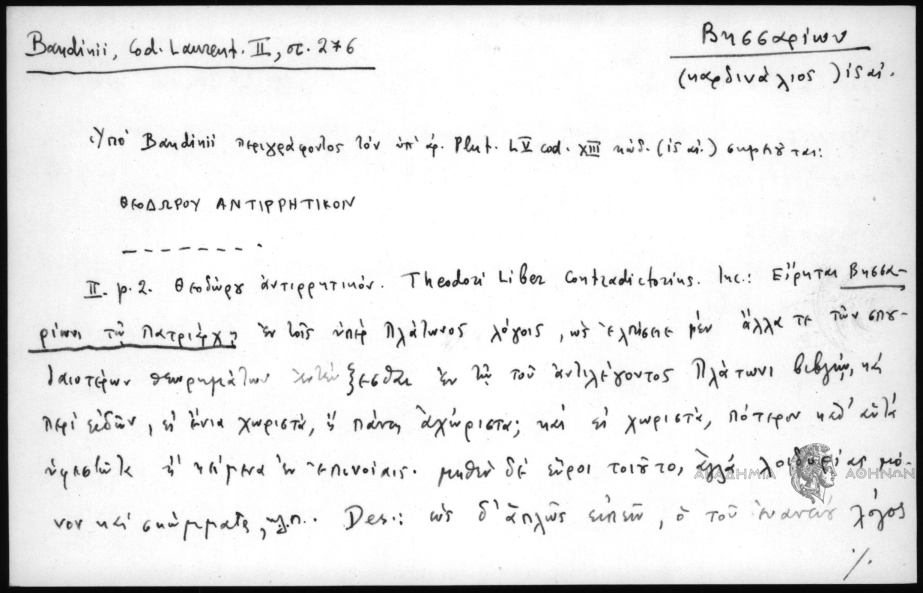 Bandinii, Cod. Laurent. II, στ. 276
Βησσαρίων
(καρδινάλιος) ιε αἰ.
Ὑπὸ Bandinii περιγράφοντος τὸν ὑπ' ἀρ. Plut. LV cod. XIII κώδ. (ιε αἰ.) σημειοῦται:
ΘΕΟΔΩΡΟΥ ΑΝΤΙΡΡΗΤΙΚΟΝ
II. p. 2. Θεοδώρου ἀντιρρητικόν. Theodori Liber Contradictorius. Inc.: Εἴρηται Βησσα-
ρίωνι τῷ Πατριάρχῃ ἐν τοῖς ὑπὲρ Πλάτωνος λόγοις, ὡς ἐλπίσειε μὲν ἄλλα τε τῶν σπου-
δαιοτέρων θεωρημάτων ἐν τῷ τοῦ ἀντιλέγοντος Πλάτωνι βιβλίῳ, καὶ
περὶ εἰδῶν, εἰ ἔνια χωριστά, ἢ πάντη ἀχώριστα; καὶ εἰ χωριστά, πότερον καθ' αὑτὰ
ὑφεστῶτα ἢ κείμενα ἐν ἐπινοίαις. μηθὲν δὲ εὕροι τοιοῦτο, ἀλλὰ λοιδορίας μό-
νον καὶ σκώμματα, κ.λ.π.. Des.: ὡς δ' ἁπλῶς εἰπεῖν, ὁ τοῦ ἐναντίου λόγος
./.
ΑΚΑΔΗΜΙΑ ΑΘΗΝΩΝ